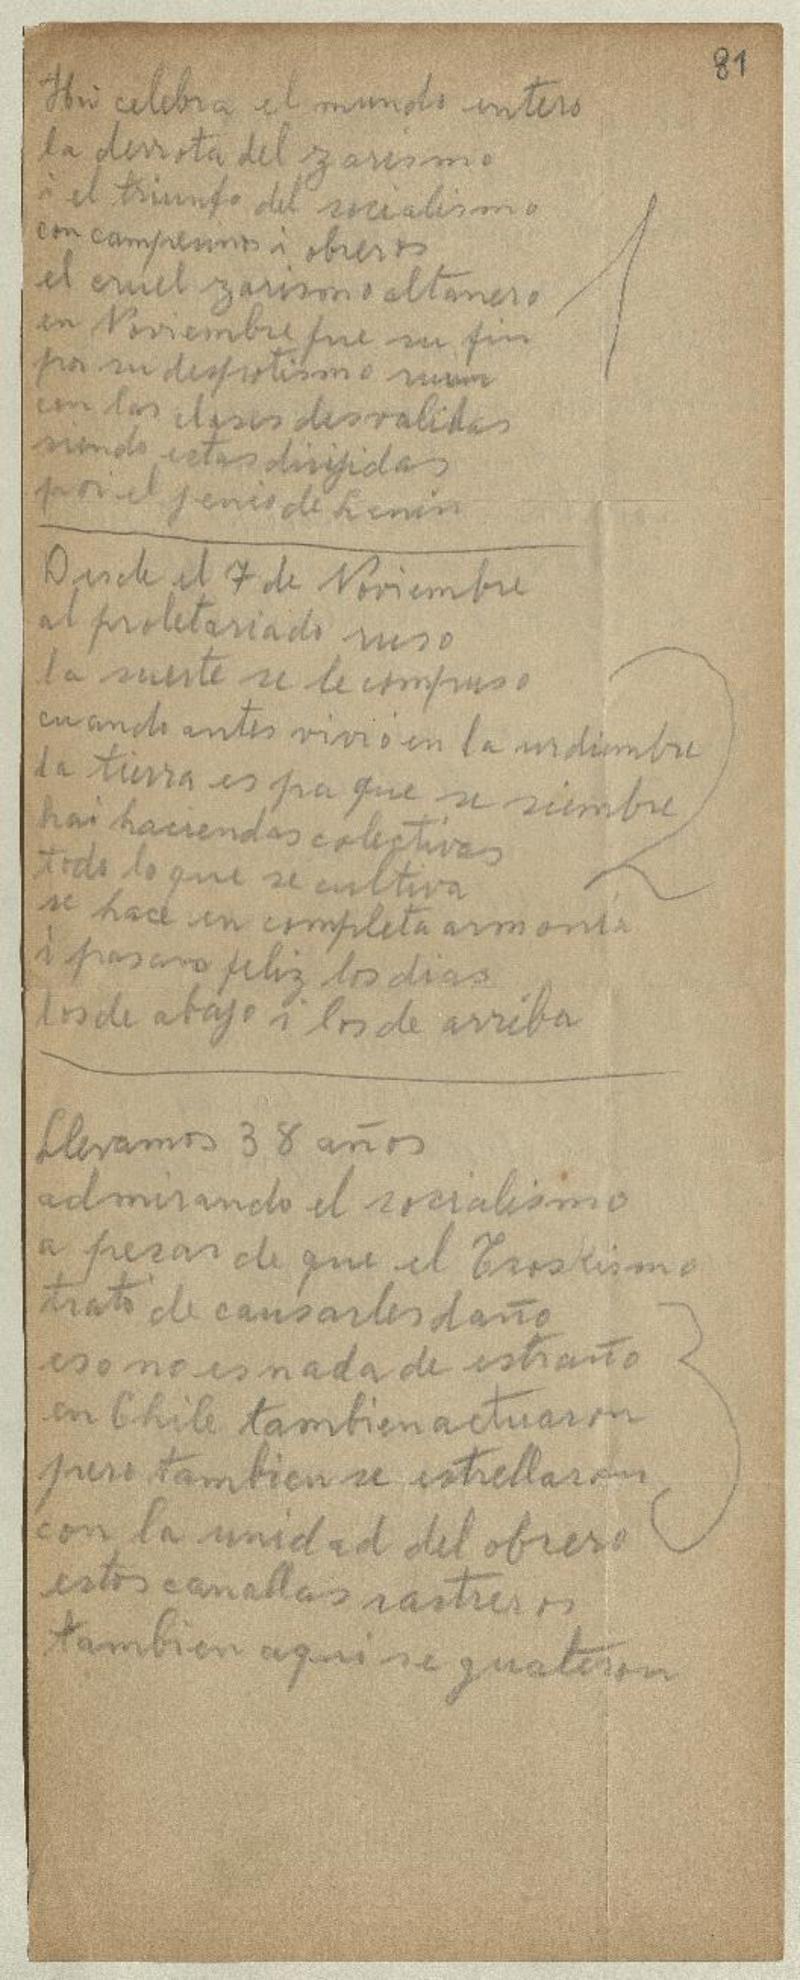 81
Hoi celebra el mundo entero
la derrota del zarismo
i el triunfo del socialismo
con campesinos i obreros
el cruel zarismo altanero
1
en Noviembre fue su fin
por su despotismo ruin
con las clases desvalidas
siendo estas dirijidas
por el jenio de Lenin
Desde el 7 de Noviembre
al proletariado ruso
la suerte se le compuso
cuando antes vivió en la urdiembre
2
la tierra es pa que se siembre
hai haciendas colectivas
todo lo que se cultiva
se hace en completa armonía
i pasaron feliz los dias
los de abajo i los de arriba
Llevamos 38 años
admirando el socialismo
a pesar de que el Troskismo
trató de causarles daño
eso no es nada de estraño
3
en Chile tambien actuaron
pero tambien se estrellaron
con la unidad del obrero
estos canallas rastreros
tambien aqui se guateron